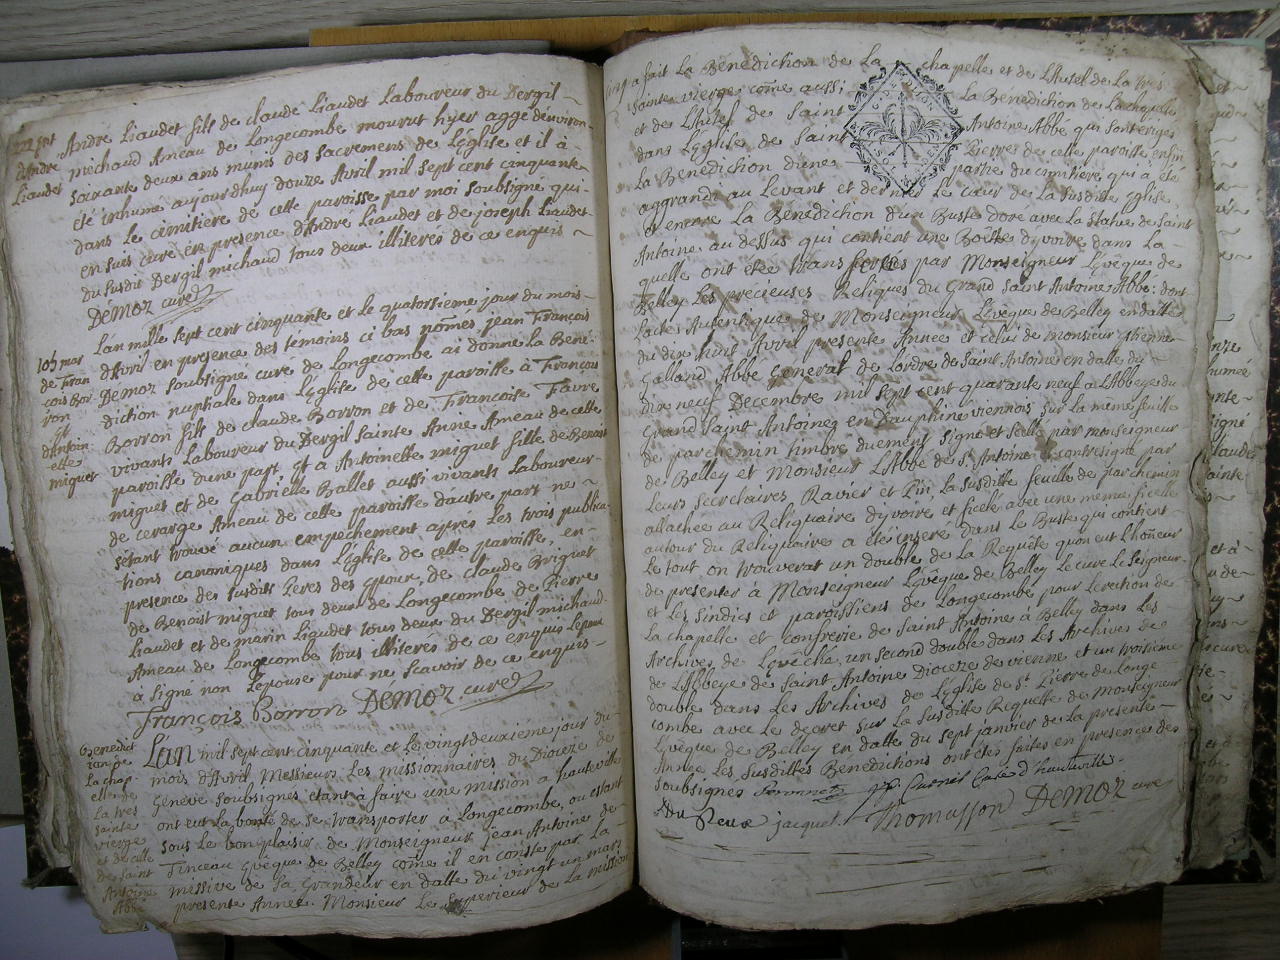 André Liaudet fils de claude Liaudet Laboureur du Dergil
michaud Ameau de Longecombe mourut hyer aggé denviron
soixante deux ans munis des sacremens de Léglise et il à
été inhumé aujourdhuy douze Avril mil sept cent cinquante
dans le cémitière de cette paroisse par moi soubsigné qui
en suis curé en presence d'André Liaudet et de joseph Liaudet
du susdit Dergil michaud tous deux illiterés de ce enquis
Demoz curé
André
Liaudet
Lan mille sept cent cinquante et le quatorsieme jour du mois
d'Avril en presence des temoins ci bas nom̃és jean François
Demoz soubsigné curé de Longecombe ai donné la Béné
diction nuptiale dans Léglise de cette paroisse à François
Borron fils de claude Borron et de Françoise Favre
vivants Laboureur du Dergil sainte Anne Ameau de cette
paroisse dune part Et a Antoinette miguet fille de Benoist
miguet et de Gabrielle Ballet aussi vivants Laboureur
de cevarge Ameau de cette paroisse dautre part ne
sétant trouvé aucun empêchement aprés les trois publica
tions canoniques dans Léglise de cette paroisse, en
presence des susdits Peres des Epoux, de claude Briguet
de Benoist miguet tous deux de Longecombe de Pierre
Liaudet et de marin Liaudet tous deux du Dergil michaud
Ameau de Longecombe tous illitérés de ce enquis Lépoux
à signé non Lépouse pour ne scavoir de ce enquis
François Borron Demoz curé
103 mar
de Fran
cois Bor
ron
Et
d'Antoin
ette
miguet
Lan mil sept cent cinquante et le vingt deuxième jour du
mois d'Avril Messieurs Les missionnaires du Diocese de
Genéve soubsignés étant à faire une mission à hauteville
ont eut la bonté de se transporter à Longecombe, ou estant
sous le bon plaisir de Monseigneur jean Antoine de
Tinceau Evêque de Belley com̃e il en conste par La
missive de sa Grandeur en datte du vingt un mars
presente Année. Monsieur Le superieur de La mission
Benedict
La chap
elle de
la tres
sainte
vierge
et de celle
de saint
Antoine
Abbé
a fait La Bénédiction de La chapelle et de L'hutel de La tres
sainte vierge com̃e aussi La Bénédiction de Lachapelle
et de L'hutel de saint Antoine Abbé qui sont erigés
dans Léglise de saint Pierre de cette paroisse enfin
La Bénédiction d'une partie du cimitière, qui à été
aggrandi au Levant et le cœur de la susditte Eglise
et encore La Bénédiction d'un Buste doré avec la statue de saint
Antoine au dessus qui contient une Boëtte d'yvoire dans La
quelle ont étée transferées par Monseigneur Lévêque de
Belley les précieuses Reliques du Grand saint Antoine Abbé: dont
Lacte Autentique de Monseigneur Lévêque de Belley en datte
du dixe huit Avril presente Année et celui de monsieur Ethienne
Galland Abbé General de Lordre de saint Antoine en datte du
dix neuf Decembre mil sept cent quarante neuf à L'Abbaye du
Grand saint Antoine en Dauphiné viennois sur la même feuille
de parchemin timbré duement signé et sellé par monseigneur
de Belley et Monsieur L'Abbé de st Antoine contresigné par
Leurs secretaires Ravier et Pin, La susditte feuille de parchemin
attachée au Reliquaire d'yvoire et ficelé avec une meme ficelle
autour du Reliquaire a été inséré dans Le Buste qui contient
Le tout on trouverat un double de La Requête quon eut L'hon̄eur
de presenter à Monseigneur Lévêque de Belley le curé Le seigneur
et les sindics et paroissiens de Longecombe pour Lerection de
La chapelle et confrerie de saint Antoine à Belley dans Les
Archives de Lévêché, un second double dans Les Archives de
de L'Abbaye de saint Antoine Dioceze de vienne et un troisieme
double dans Les Archives de Léglise de St Pierre de Longe
combe avec Le décret sur La susditte Requette de monseigneur
Evêque de Belley en datte du sept janvier de la presente
Année Les susdittes Benedictions ont étés faites en presences des
soubsignés Curé d'hauteville
jacquet Thomasson Demoz curé